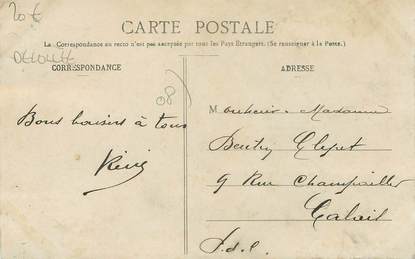 20 €
DECOLLÉE
CARTE POSTALE
La Correspondance au recto n'est pas acceptée par tous les Pays Étrangers. (Se renseigner à la Poste.)
CORRESPONDANCE
ADRESSE
08
Bons baisers à tous
Monsieur Madame
9 Rue
Calais
P.d.C.